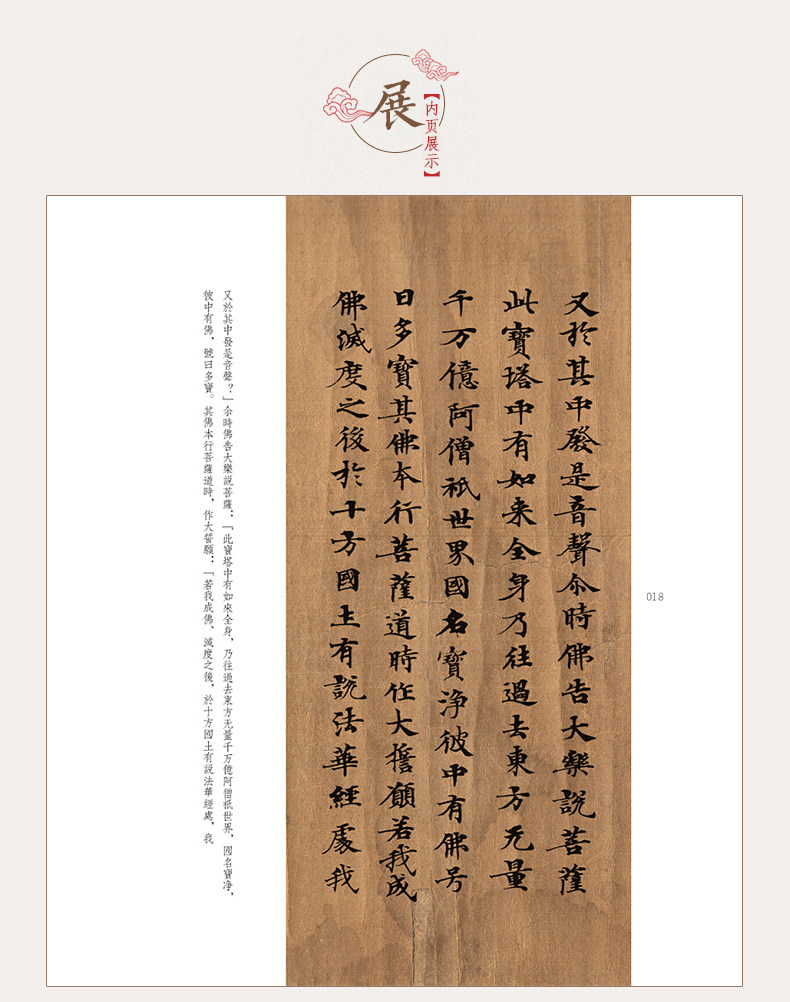 展
【内页展示】
又於其中發是音聲尒時佛告大樂説菩薩
此寶塔中有如来全身乃往過去東方无量
千万億阿僧祇世界國名寶淨彼中有佛号
曰多寶其佛本行菩薩道時作大擔願若我成
佛滅度之後於十方國土有説法華經處我
018
又於其中發是音聲？」尒時佛告大樂説菩薩：「此寶塔中有如來全身，乃往過去東方无量千万億阿僧祇世界，國名寶净，
彼中有佛，號曰多寶。其佛本行菩薩道時，作大誓願：「若我成佛、滅度之後，於十方國土有説法華經處，我